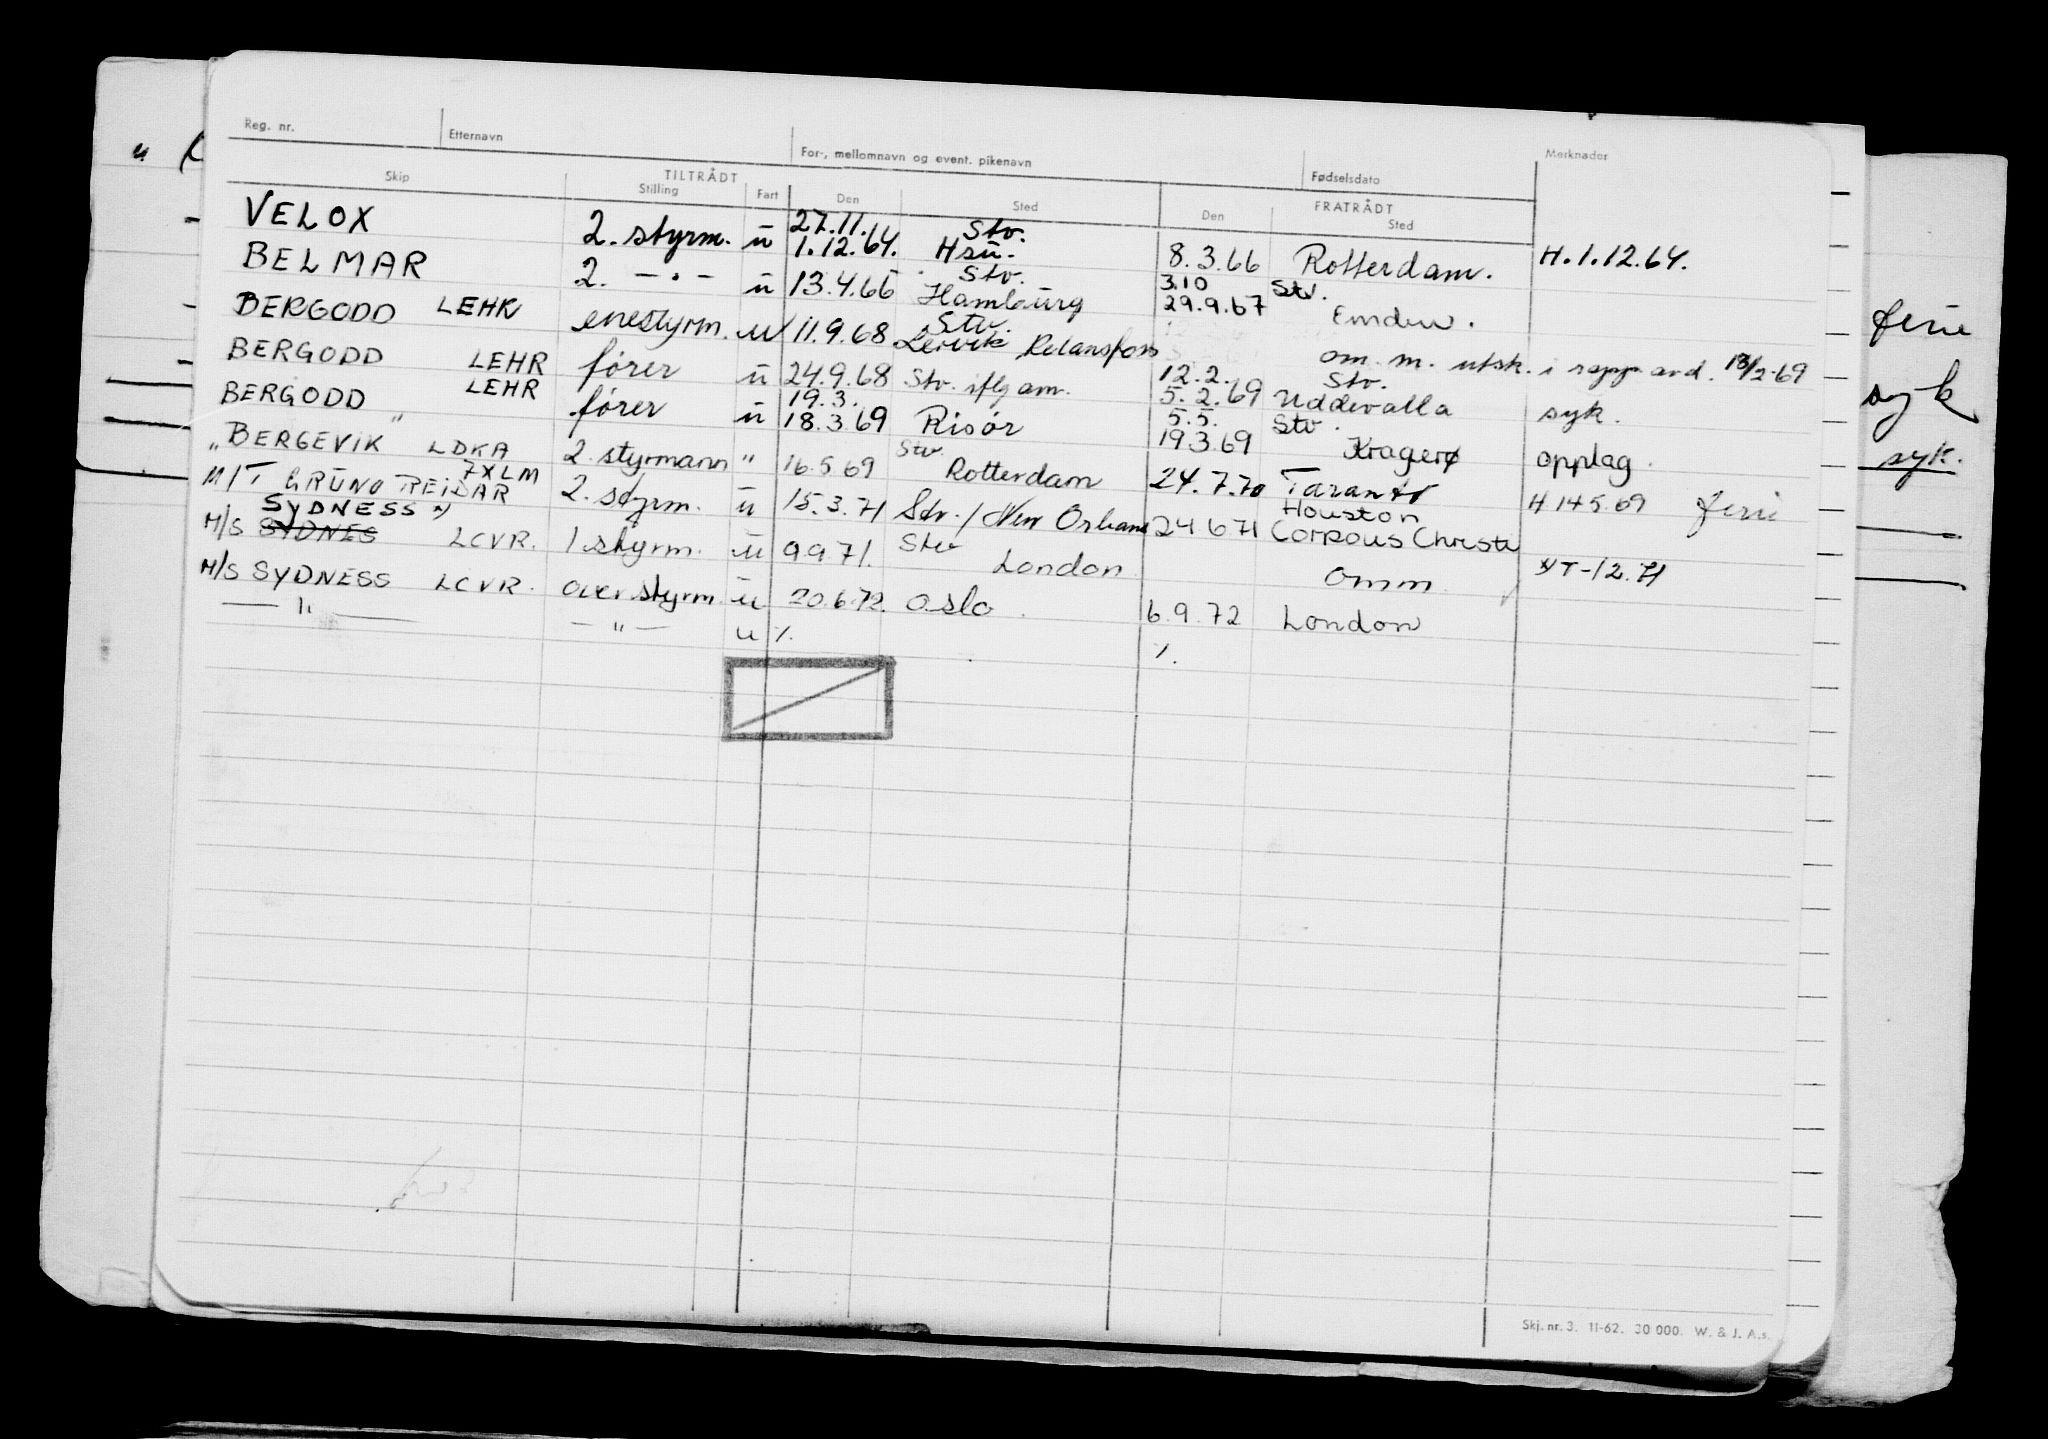 Reg. nr. Etternavn For-, mellomnavn og event. pikenavn Fødselsdato Merknader
Skip TILTRÅDT FRATRÅDT
Stilling Fart Den Sted Den Sted
VELOX 2. styrm. u 27.11. 1.12.64. Stv. Hsu. 8.3.66 Rotterdam. H.1.12.64.
BELMAR 2. -"- u 13.4.66 Stv. Hamburg 3.10 29.9.67 Stv. Emden.
BERGODD LEHR enestyrm. u 11.9.68 Stv. Lervik om. m. utsk. i rapp avd. 13/2-69
BERGODD LEHR fører u 24.9.68 Stv. iflg am. 12.2. 5.2.69 Stv. Uddevalla syk.
BERGODD LEHR fører u 19.3. 18.3.69 Risør 5.5. 19.3.69 Stv. Kragerø opplag.
" BERGEVIK LDKA 2. styrmann " 16.5.69 Stv. Rotterdam 24.7.70 Taranto H 14.5.69 ferie
M/T GRUNO REIDAR 7XLM 2. styrm. u 15.3.71 Stv. / New Orleans 24.6.71 Houston Corpous Christi
M/S SYDNES SYDNESS x) LCVR. 1 styrm. u 9.9.71. Stv London Omm x) T-12.71
M/S SYDNESS LCVR. overstyrm. u 20.6.72. Oslo. 6.9.72 London
— " — — " — u %. %.
ferie
syk
syk.
Skj. nr. 3. 11-62. 30 000. W. & J. A.s.